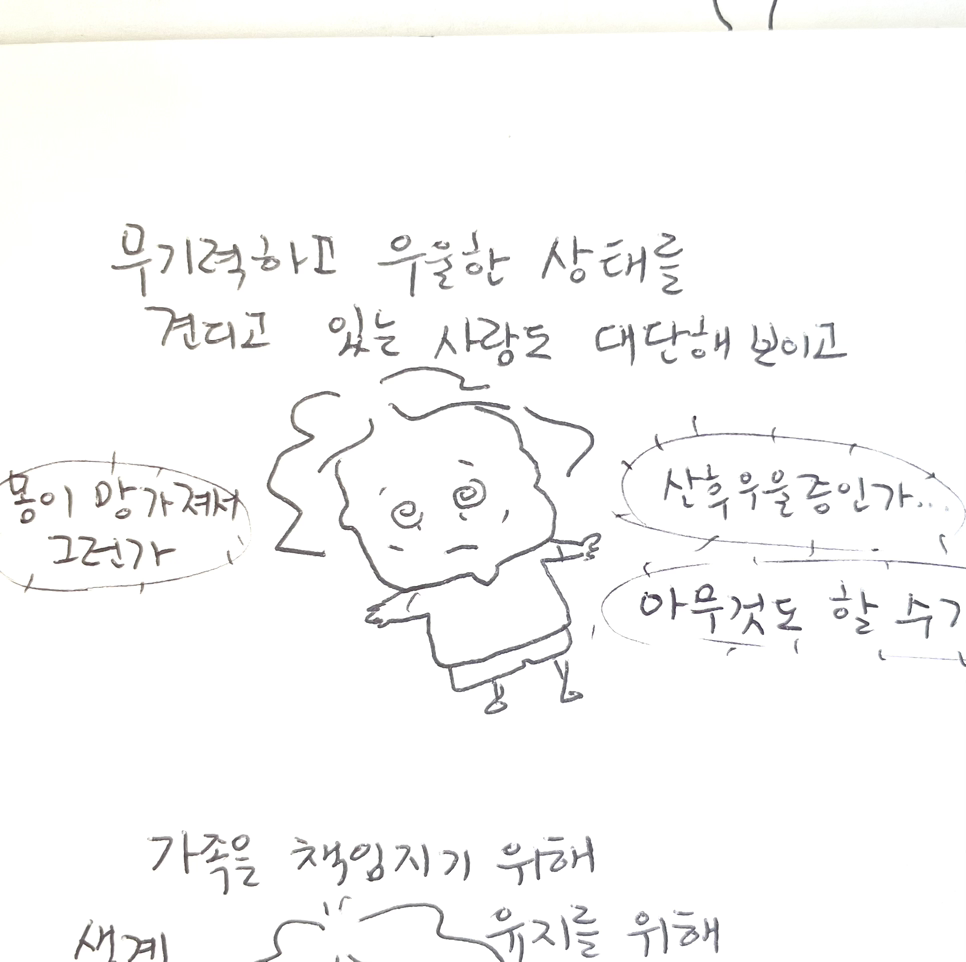 무기력하고 우울한 상태를
견디고 있는 사람도 대단해 보이고
몸이 망가져서
그런가
산후우울증인가...
아무것도 할 수가
가족을 책임지기 위해
생계 유지를 위해